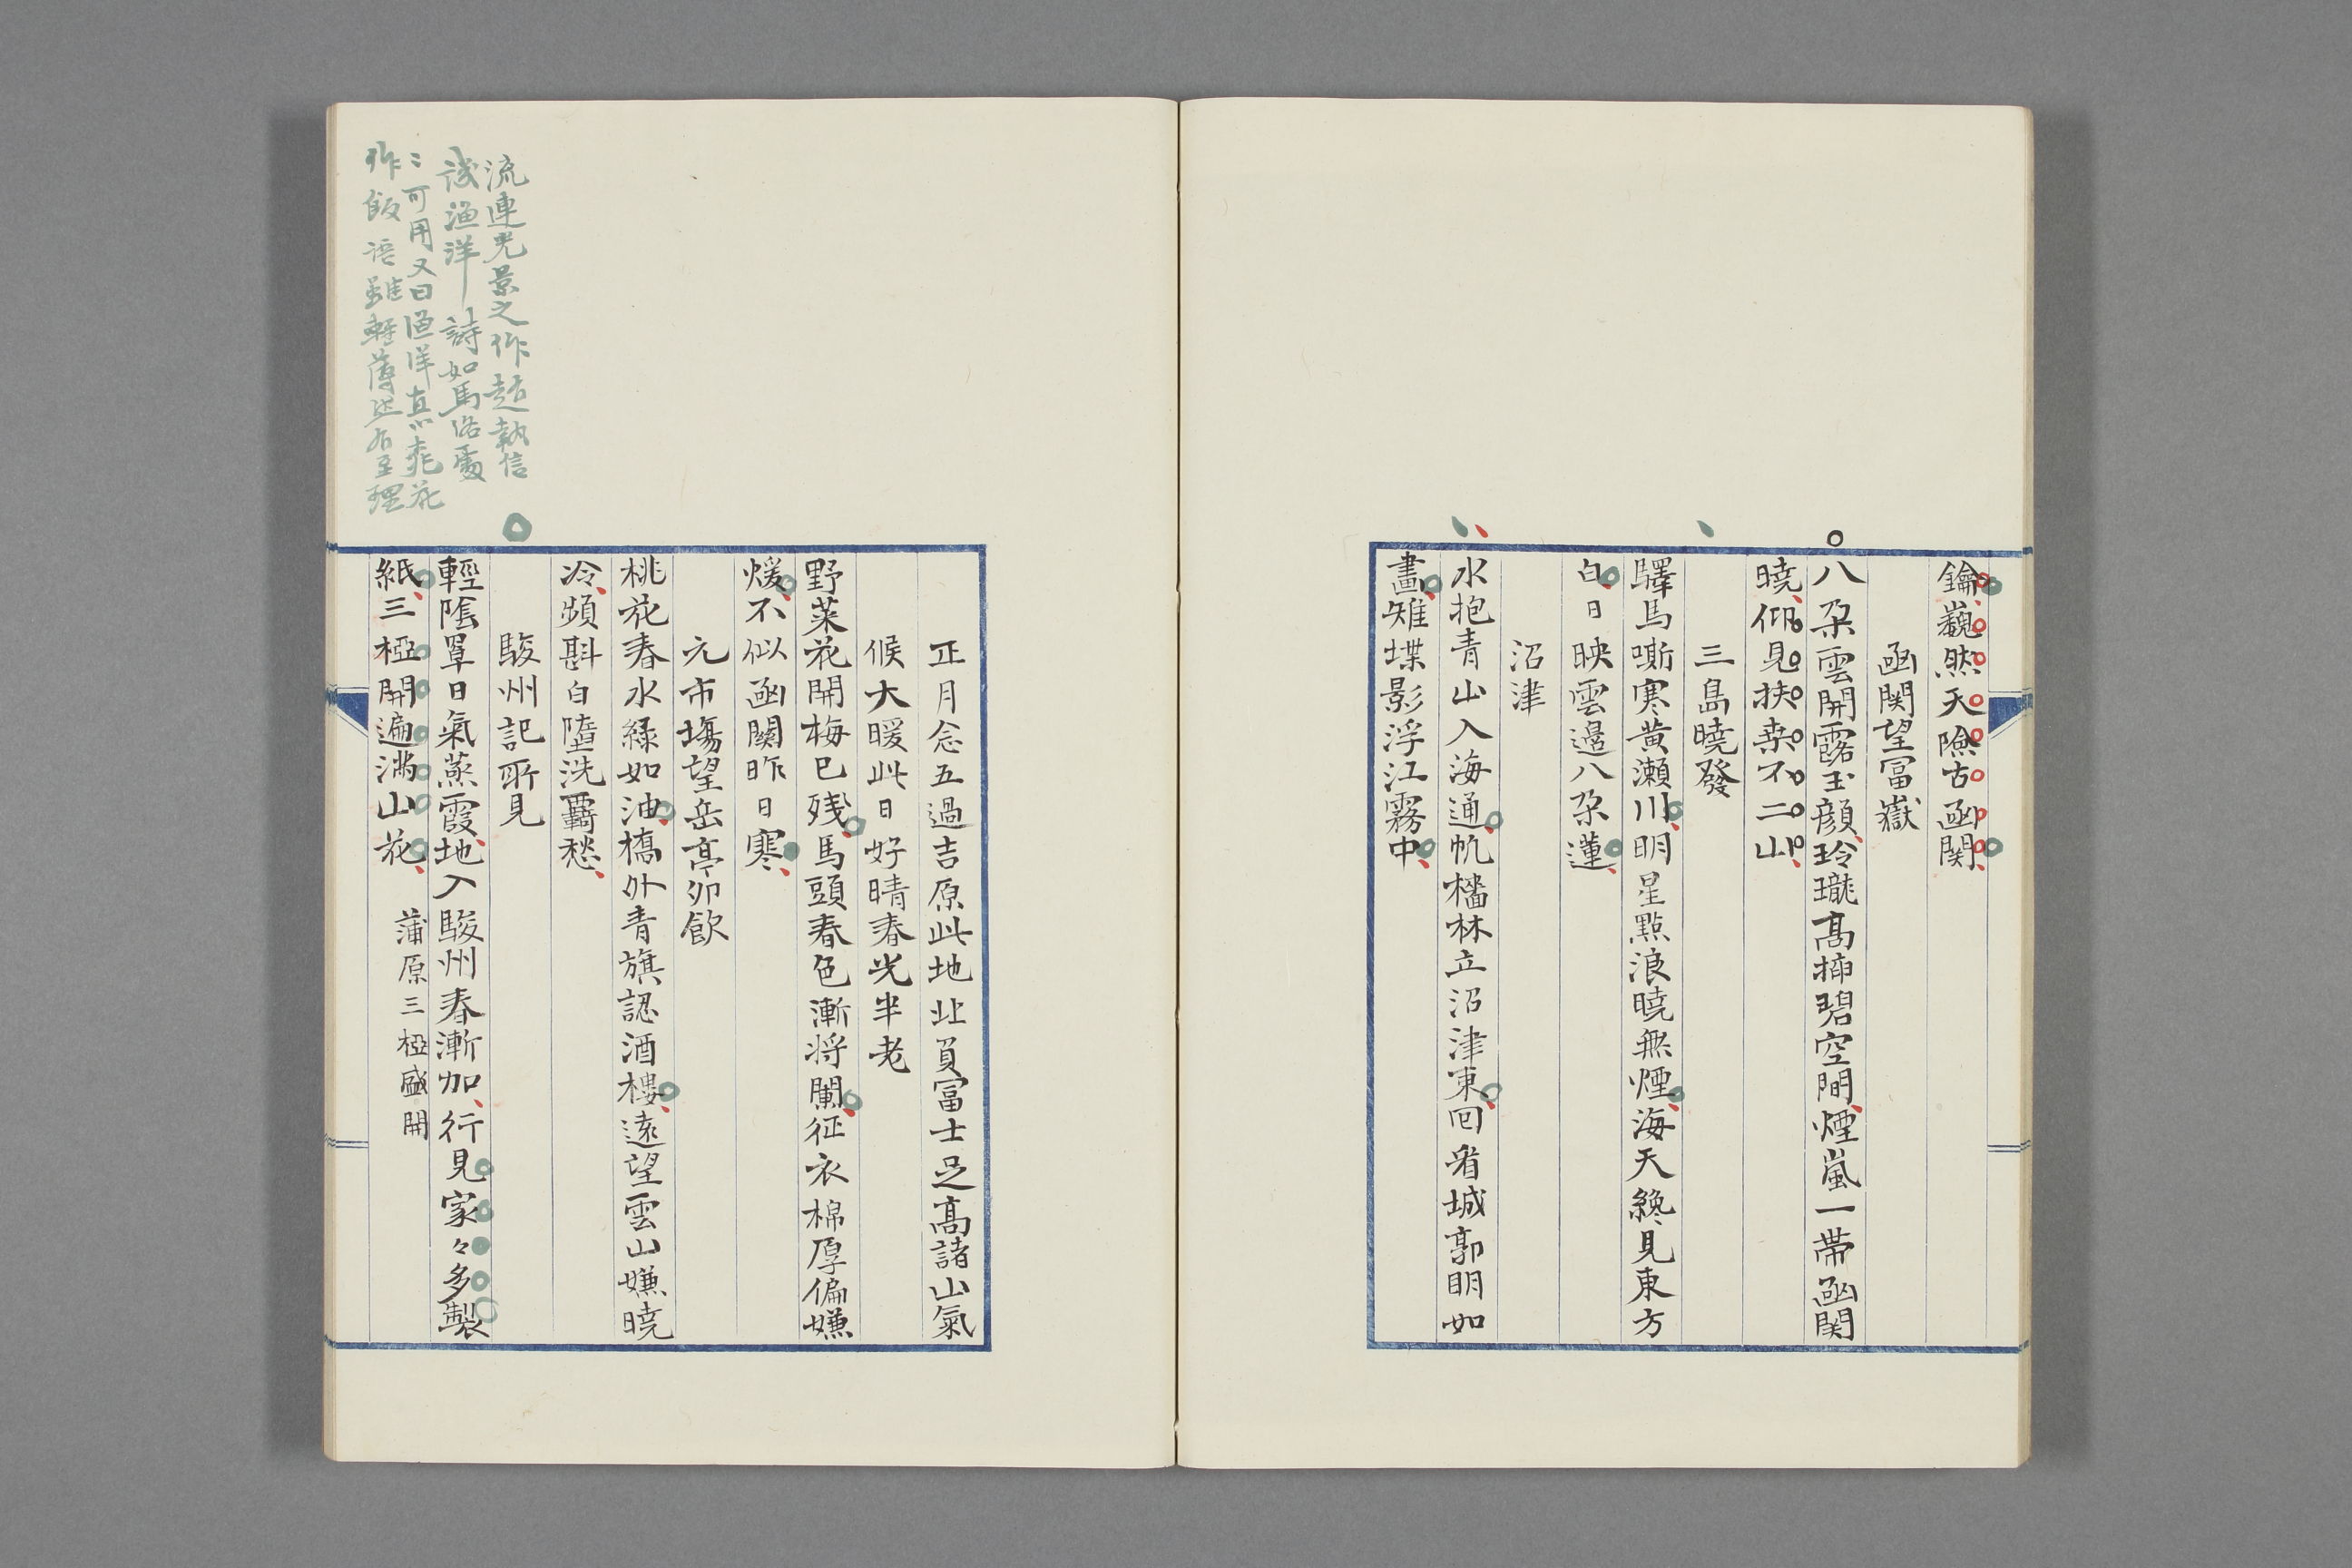 鑰巍然天險古凾関
凾関望冨嶽
八朶雲開露玉顔玲瓏髙挿碧空間煙嵐一帯凾関
曉仰見扶桒不二山
三島曉發
驛馬嘶寒黄瀬川明星點浪曉無煙海天纔見東方
白日映雲邉八朶蓮
沼津
水抱青山入海通帆檣林立沼津東回看城郭明如
畫雉堞影浮江霧中
正月念五過吉原此地北負冨士足髙諸山氣
候大暖此日好晴春光半老
野菜花開梅已残馬頭春色漸将闌征衣棉厚偏嫌
煖不似凾關昨日寒
元市塲望岳亭卯飲
桃花春水緑如油橋外青旗認酒樓遠望雲山嫌曉
冷頻斟白墮洗覊愁
駿州記所見
輕陰罩日氣蒸霞地入駿州春漸加行見家々多製
紙三椏開遍満山花 蒲原三椏盛開
流連光景之作趙執信
譏漁洋詩如馬洛處
〻可用又曰漁洋真以桃花
作飯語雖輕薄然有至理